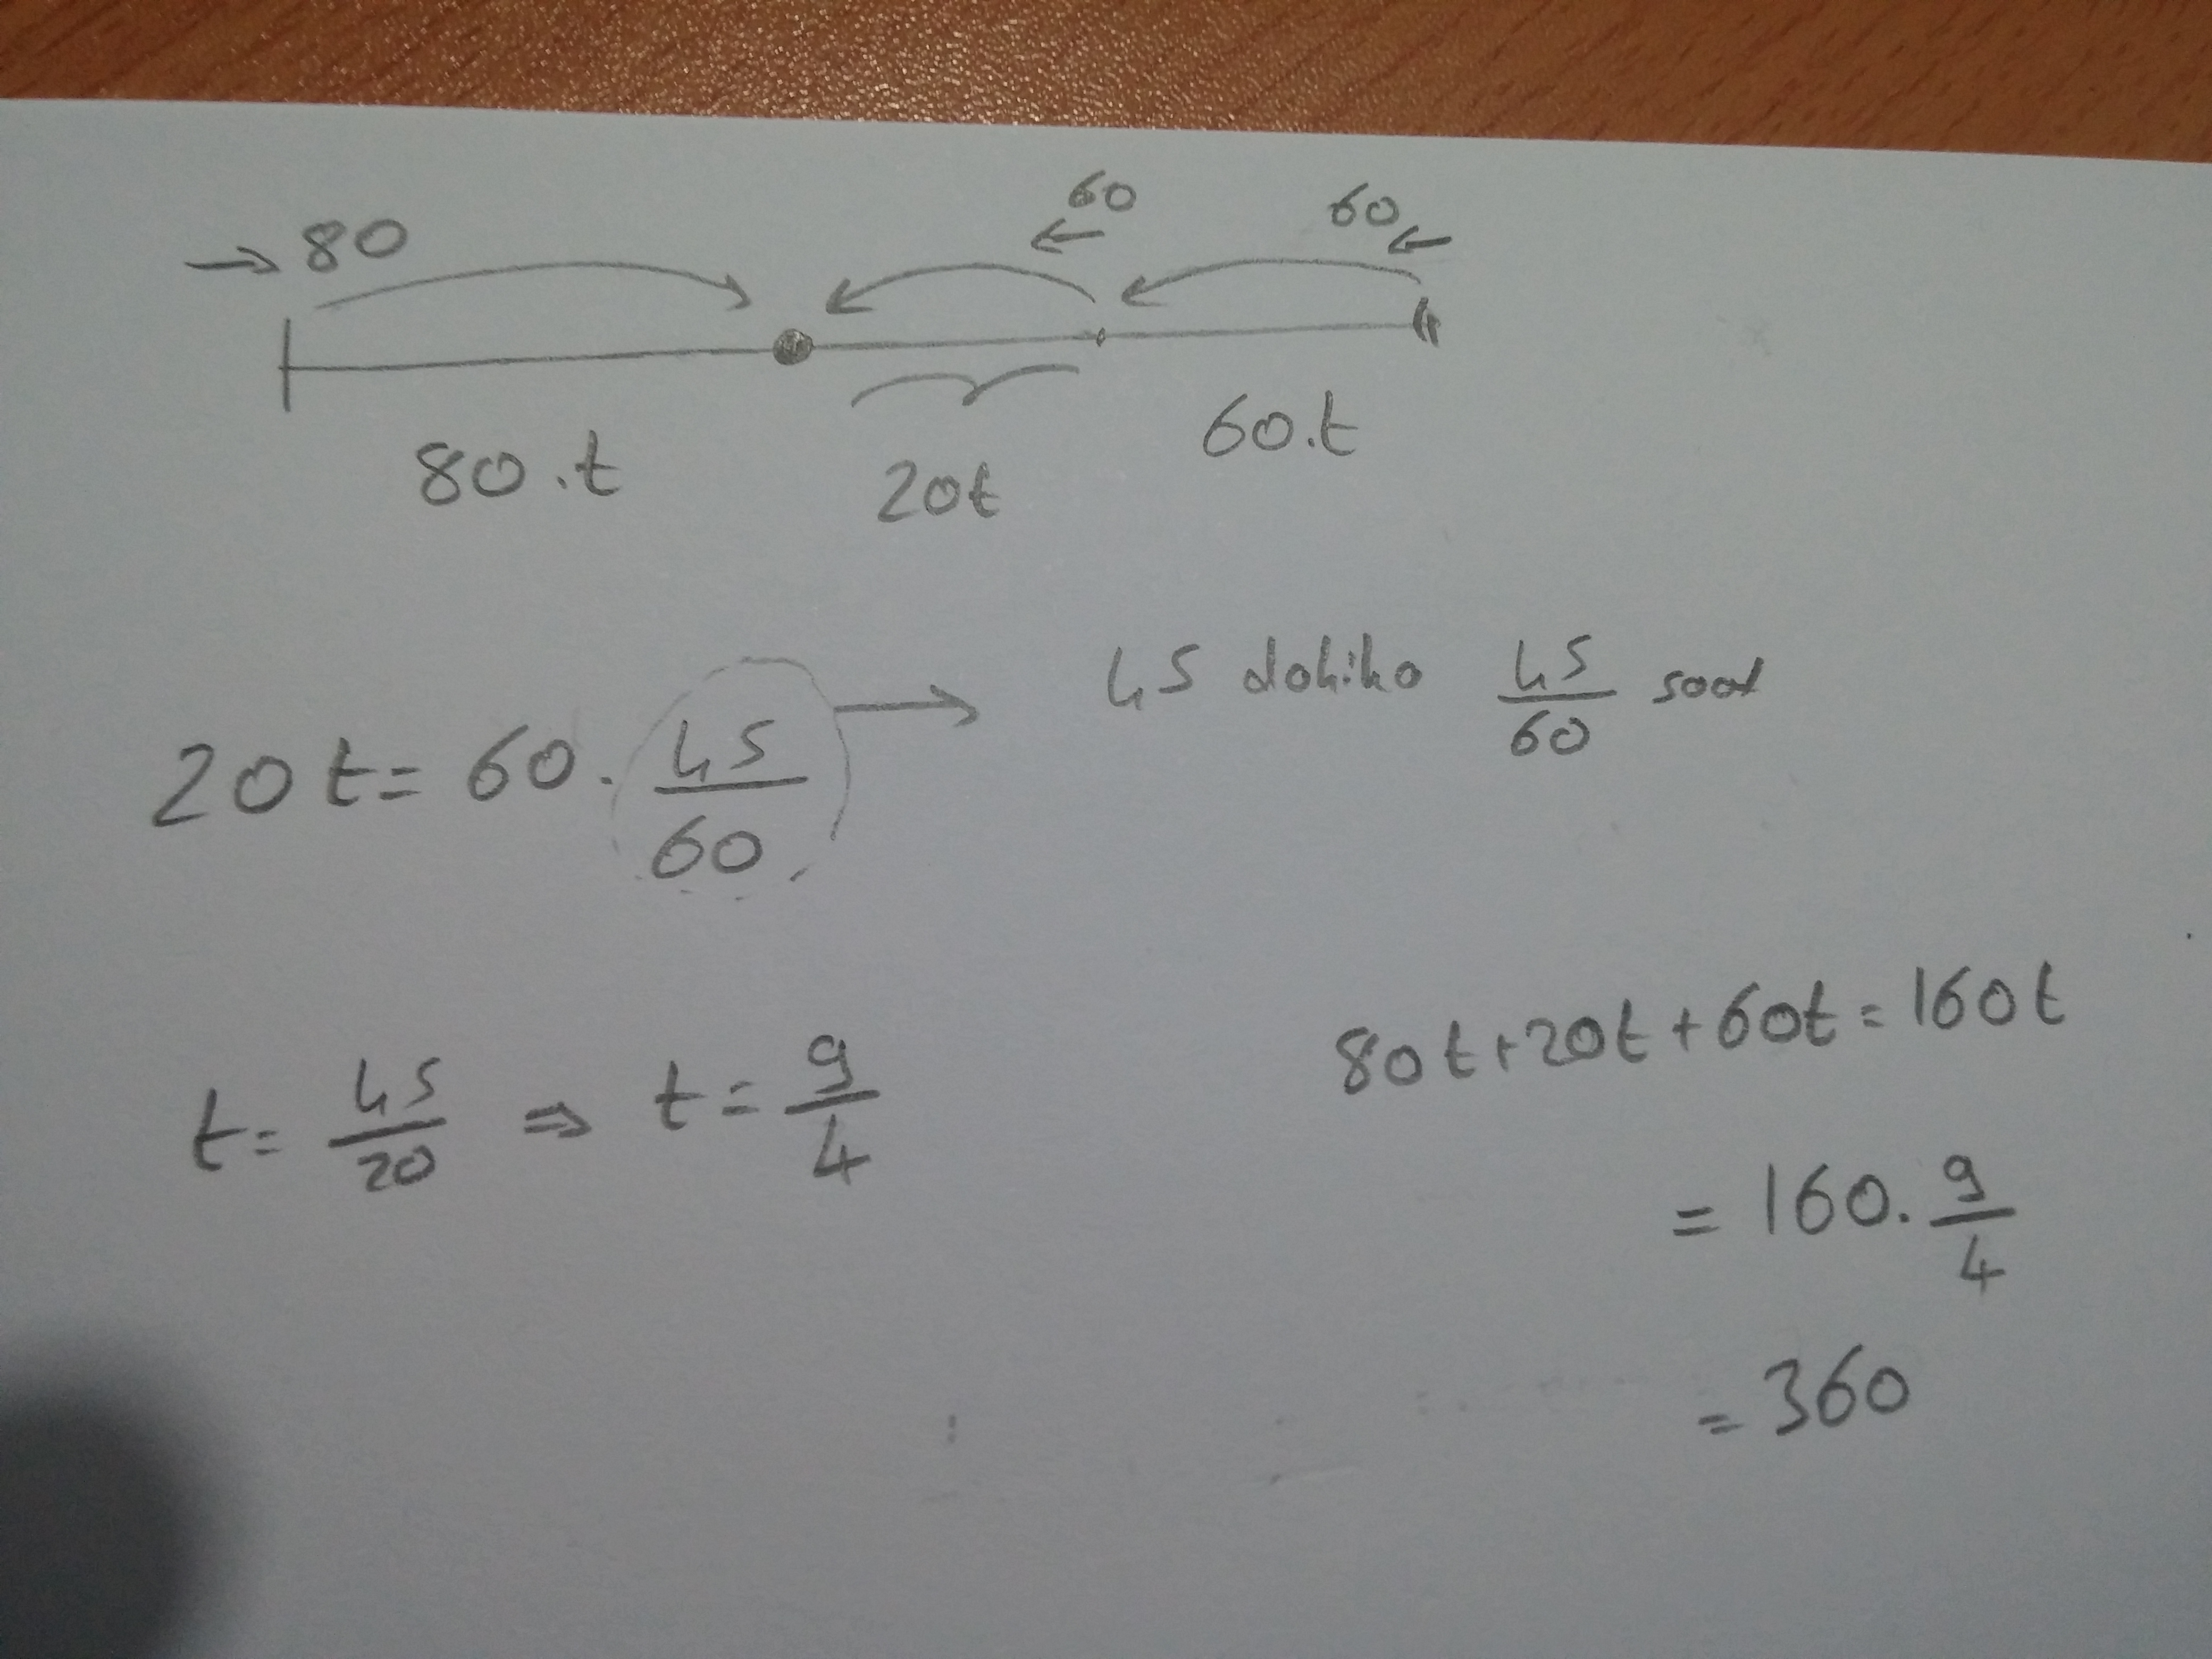 → 80 ← 60 60 ←
80.t 20t 60.t
20t = 60 . 45/60 → 45 dakika 45/60 saat
t = 45/20 ⇒ t = 9/4
80t + 20t + 60t = 160t
= 160 . 9/4
= 360